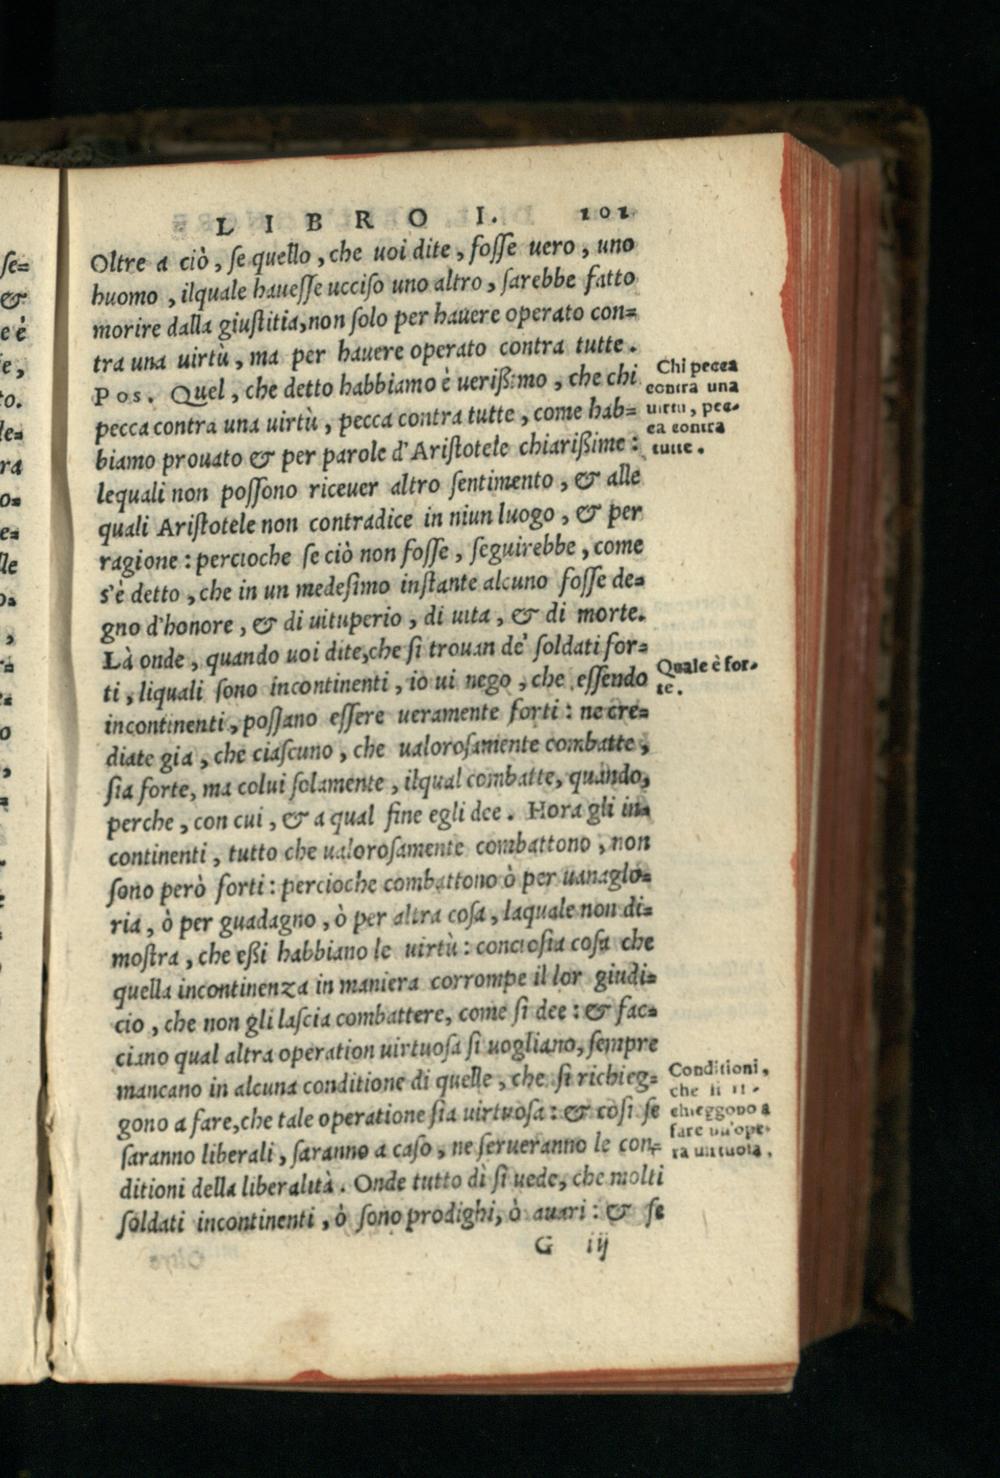 LIBRO I. 101
Oltre a ciò, ſe quello, che uoi dite, foſſe uero, uno
huomo, ilquale haueſſe ucciſo uno altro, ſarebbe fatto
morire dalla giuſtitia, non ſolo per hauere operato con=
tra una uirtù, ma per hauere operato contra tutte.
Pos. Quel, che detto habbiamo è ueriſſimo, che chi
pecca contra una uirtù, pecca contra tutte, come hab=
biamo prouato & per parole d'Ariſtotele chiariſſime:
lequali non poſſono riceuer altro ſentimento, & alle
quali Ariſtotele non contradice in niun luogo, & per
ragione: percioche ſe ciò non foſſe, ſeguirebbe, come
s'è detto, che in un medeſimo inſtante alcuno foſſe de=
gno d'honore, & di uituperio, di uita, & di morte.
Là onde, quando uoi dite, che ſi trouan de' ſoldati for=
ti, liquali ſono incontinenti, io ui nego, che eſſendo
incontinenti, poſſano eſſere ueramente forti: ne cre=
diate gia, che ciaſcuno, che ualoroſamente combatte,
ſia forte, ma colui ſolamente, ilqual combatte, quando,
perche, con cui, & a qual fine egli dee. Hora gli in=
continenti, tutto che ualoroſamente combattono, non
ſono però forti: percioche combattono ò per uanaglo=
ria, ò per guadagno, ò per altra coſa, laquale non di=
moſtra, che eſſi habbiano le uirtù: concioſia coſa che
quella incontinenza in maniera corrompe il lor giudi=
cio, che non gli laſcia combattere, come ſi dee: & fac=
ciano qual altra operation uirtuoſa ſi uogliano, ſempre
mancano in alcuna conditione di quelle, che ſi richieg=
gono a fare, che tale operatione ſia uirtuoſa: & coſi ſe
ſaranno liberali, ſaranno a caſo, ne ſerueranno le con=
ditioni della liberalità. Onde tutto dì ſi uede, che molti
ſoldati incontinenti, ò ſono prodighi, ò auari: & ſe
G iij
Chi pecca
contra una
uirtu, pec-
ca contra
tutte.
Quale è for-
te.
Conditioni,
che ſi ri-
chieggono a
fare un'ope-
ra uirtuoſa.